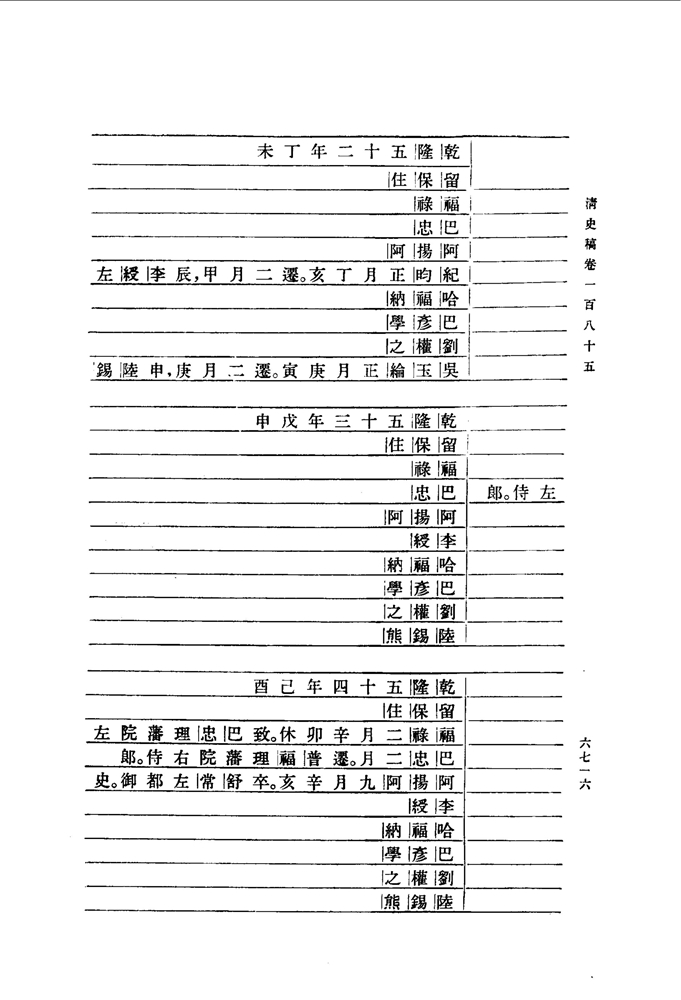 清史稿卷一百八十五
乾隆五十二年丁未
留保住
福祿
巴忠
阿揚阿
紀昀正月丁亥遷。二月甲辰,李綬左
哈福納
巴彥學
劉權之
吳玉綸正月庚寅遷。二月庚申,陸錫
乾隆五十三年戊申
留保住
福祿
左侍郎。 巴忠
阿揚阿
李綬
哈福納
巴彥學
劉權之
陸錫熊
乾隆五十四年己酉
留保住
福祿二月辛卯休致。巴忠理藩院左
巴忠二月遷。普福理藩院右侍郎。
阿揚阿九月辛亥卒。舒常左都御史。
李綬
哈福納
巴彥學
劉權之
陸錫熊
六七一六